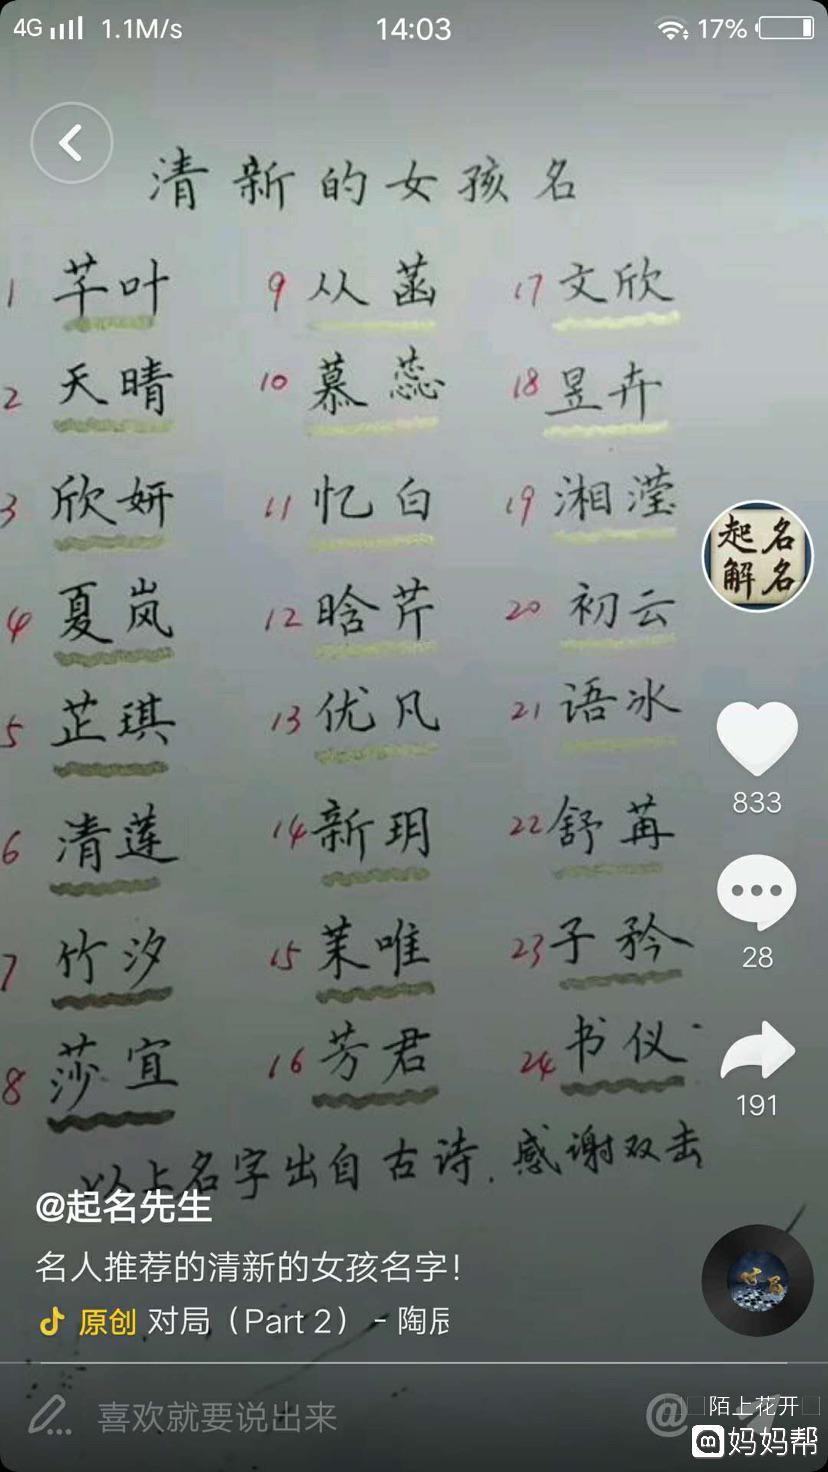 4G 1.1M/s 14:03 17%
清新的女孩名
1 芊叶 9 从菡 17 文欣
2 天晴 10 慕蕊 18 昱卉
3 欣妍 11 忆白 19 湘滢
4 夏岚 12 晗芹 20 初云
5 芷琪 13 优凡 21 语冰
6 清莲 14 新玥 22 舒苒
7 竹汐 15 茉唯 23 子矜
8 莎宜 16 芳君 24 书仪
以上名字出自古诗.感谢双击
起名
解名
833
28
191
@起名先生
名人推荐的清新的女孩名字!
原创 对局(Part 2) - 陶辰
喜欢就要说出来
@
陌上花开
妈妈帮